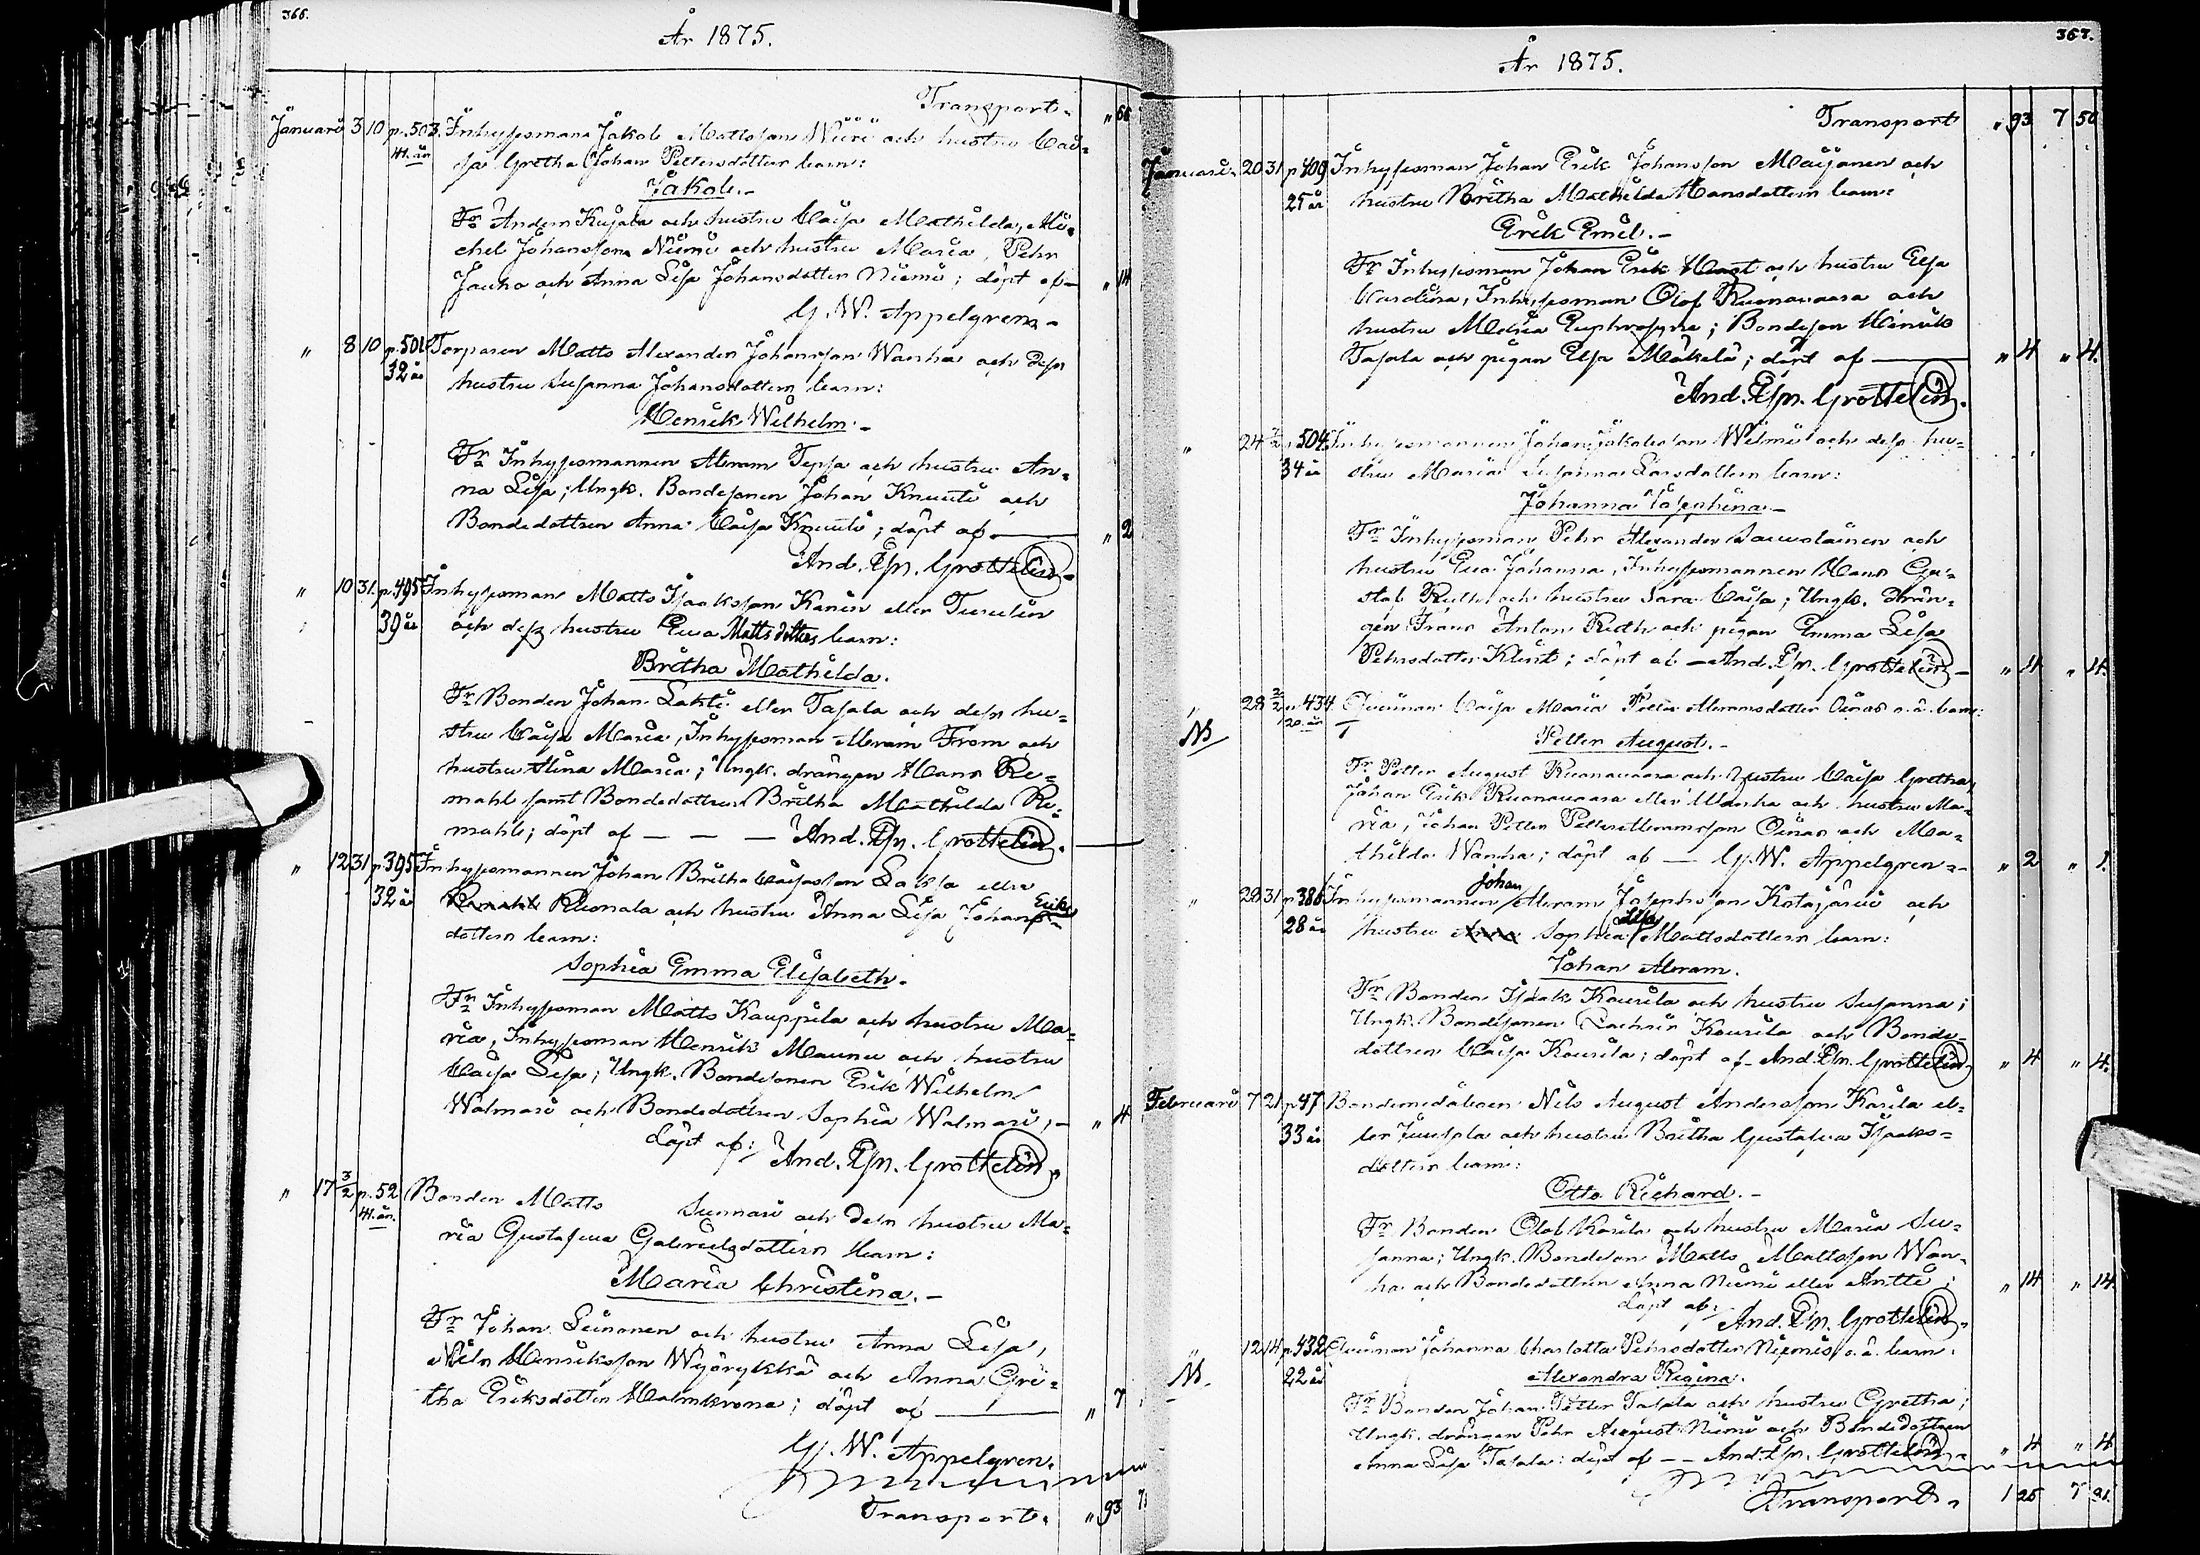 366.
År 1875.
Transport. " 66
Januari 3 10 p. 503. Inhysesmann Jakob Mattsson Wiiri och hustru Cai-
41. år sa Gretha Johan Pettersdotters barn:
Jakob.-
Fr Anders Kujala och hustru Caisa Mathilda, Mi-
chel Johansson Niemi och hustru Maria, Pehr
Jauho och Anna Lisa Johansdotter Niemi; döpt af — " 14
G. W. Appelgren.-
" 8 10 p. 501 Torparen Matts Alexander Johansson Wanha och dess
32 år hustru Susanna Johansdotters barn:
Henrik Wilhelm.-
Fr Inhysesmannen Abram Tepsa och hustru An-
na Lisa; Ungk. Bondesonen Johan Knuuti och
Bondedottren Anna Caisa Knuuti; döpt af — " 2
And. Esn. Grottelin.-
" 10 31. p. 495 Inhysesman Matts Isaksson Kariin eller Tuuliin
39 år och dess hustru Ewa Mattsdotters barn:
Britha Mathilda.
Fr Bonden Johan Lakti eller Tasala och dess hu-
stru Caisa Maria, Inhysesman Abram From och
hustru Stina Maria; Ungk. drängen Hans Re-
mahl samt Bondedottren Britha Mathilda Re-
mahl; döpt af — — — And. Esn. Grottelin.
" 12 31 p. 395 Inhysesmannen Johan Britha Caisasson Laksa eller
32 år Ruonala och hustru Anna Lisa Johans Eriks
dotters barn:
Sophia Emma Elisabeth.
Fr Inhysesman Matts Kauppila och hustru Ma-
ria, Inhysesman Henrik Maunu och hustru
Caisa Lisa; Ungk. Bondesonen Erik Wilhelm
Walmari och Bondedottren Sophia Walmari;- " 4
döpt af: And. Esn. Grottelin.
" 17 3/2 p. 52 Bonden Matts Sunnari och dess hustru Ma-
41. år. ria Gustafwa Gabrielsdotters barn:
Maria Christina.-
Fr Johan Leinonen och hustru Anna Lisa,
Nils Henriksson Wyörykkä och Anna Gre-
tha Eriksdotter Malmkrona; döpt af — " 7
G. W. Appelgren.
Transport. " 93 7
367.
År 1875.
Transport " 93 7 50
Januari. 20 31 p 409 Inhysesman Johan Erik Johansson Maijanen och
25 år hustru Britha Mathilda Hansdotters barn:
Erik Emil.-
Fr Inhysesman Johan Erik Hast och hustru Elsa
Carolina, Inhysesman Olof Ruonawaara och
hustru Maria Euphrosyne; Bondeson Henrik
Tasala och pigan Elsa Mäkelä; döpt af — " 4 " 4.
And. Esn. Grottelin.
" 24 7/2 p 504. Inhysesmannen Johan Jakobsson Wilmi och dess hu-
34 år stru Maria Susanna Larsdotters barn:
Johanna Josephina.-
Fr Inhysesman Pehr Alexander Sauwolainen och
hustru Ewa Johanna, Inhysesmannen Hans Gu-
staf Ruth och hustru Sara Caisa; Ungk. drän-
gen Frans Anton Ruth och pigan Emma Lisa
Pehrsdotter Klint; döpt af — And. Esn. Grottelin.- " 4 " 4.
" 28 2/2 p 434 Qvinnan Caisa Maria Petter Abramsdotter Oinas o.ä. barn:
20. år
NB Petter August.-
Fr Petter August Ruonawaara och hustru Caisa Gretha,
Johan Erik Ruonawaara eller Wanha och hustru Ma-
ria, Johan Petter Petter Abramsson Oinas och Ma-
thilda Wanha; döpt af — G. W. Appelgren.- " 2 " 1.
" 28 31 p 386 Inhysesmannen Johan Abram Josephsson Kotajärwi och
28 år hustru Anna Sophia Lisa Mattsdotters barn:
Johan Abram.
Fr Bonden Isaak Kourila och hustru Susanna;
Ungk. Bondesonen Zachris Kourila och Bonde-
dottren Caisa Kourila; döpt af - And. Esn. Grottelin, " 4 " 4.
Februari 7 21 p 47 Bondemedåboen Nils August Andersson Karila el-
33 år ler Juuspla och hustru Britha Gustafwa Isaaks-
dotters barn:
Otto Richard.-
Fr Bonden Olof Karila och hustru Maria Su-
sanna; Ungk. Bondeson Matts Mattsson Wan-
ha och Bondedottren Anna Niemi eller Antti; " 14 " 14.
döpt af: And. Esn. Grottelin.
" 12 14 p. 432 Qvinnan Johanna Charlotta Pehrsdotter Niemis o.ä. barn:
NB. 22 år Alexandra Regina.
Fr Bonden Johan Petter Tasala och hustru Gretha;
Ungk. drängen Pehr August Niemi och Bondedottren
Anna Lisa Tasala: döpt af — And. Esn. Grottelin. " 4 " 4
Transport. 1 25 7 81.